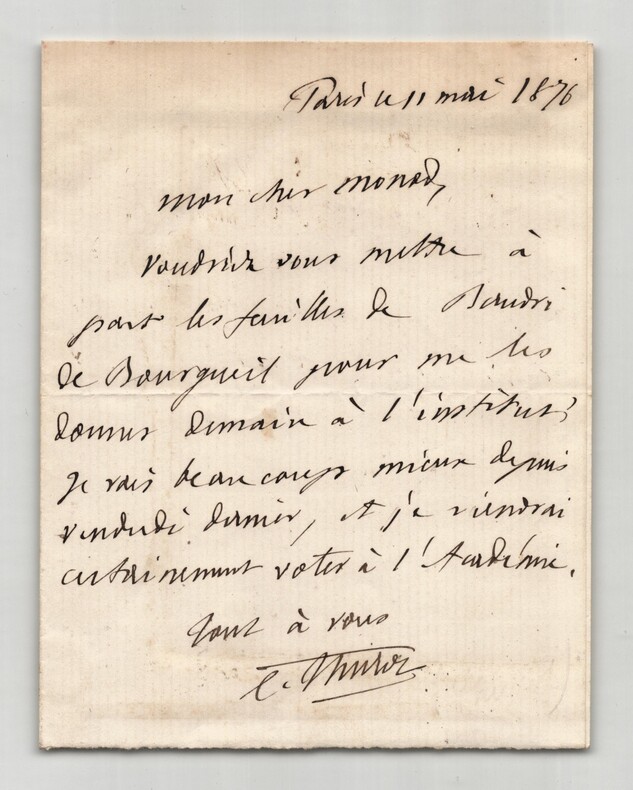 Paris le 11 mai 1876
mon cher monod,
voudriez vous mettre à
part les feuilles de Baudri
de Bourgueil pour me les
donner demain à l'institut?
Je vais beaucoup mieux depuis
vendredi dernier, et je viendrai
certainement voter à l'Académie.
tout à vous
C. Thurot